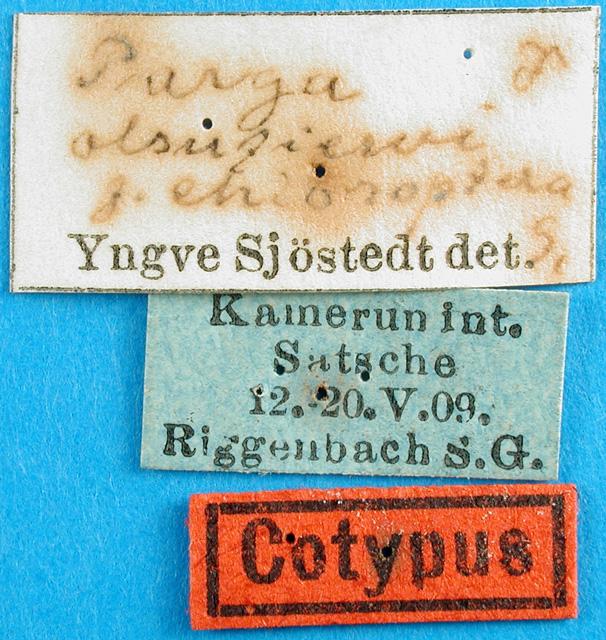 Parga ♂
f. chloroptera
S.
Yngve Sjöstedt det.
Kamerun int.
Satsche
12.-20.V.09.
Riggenbach S.G.
Cotypus